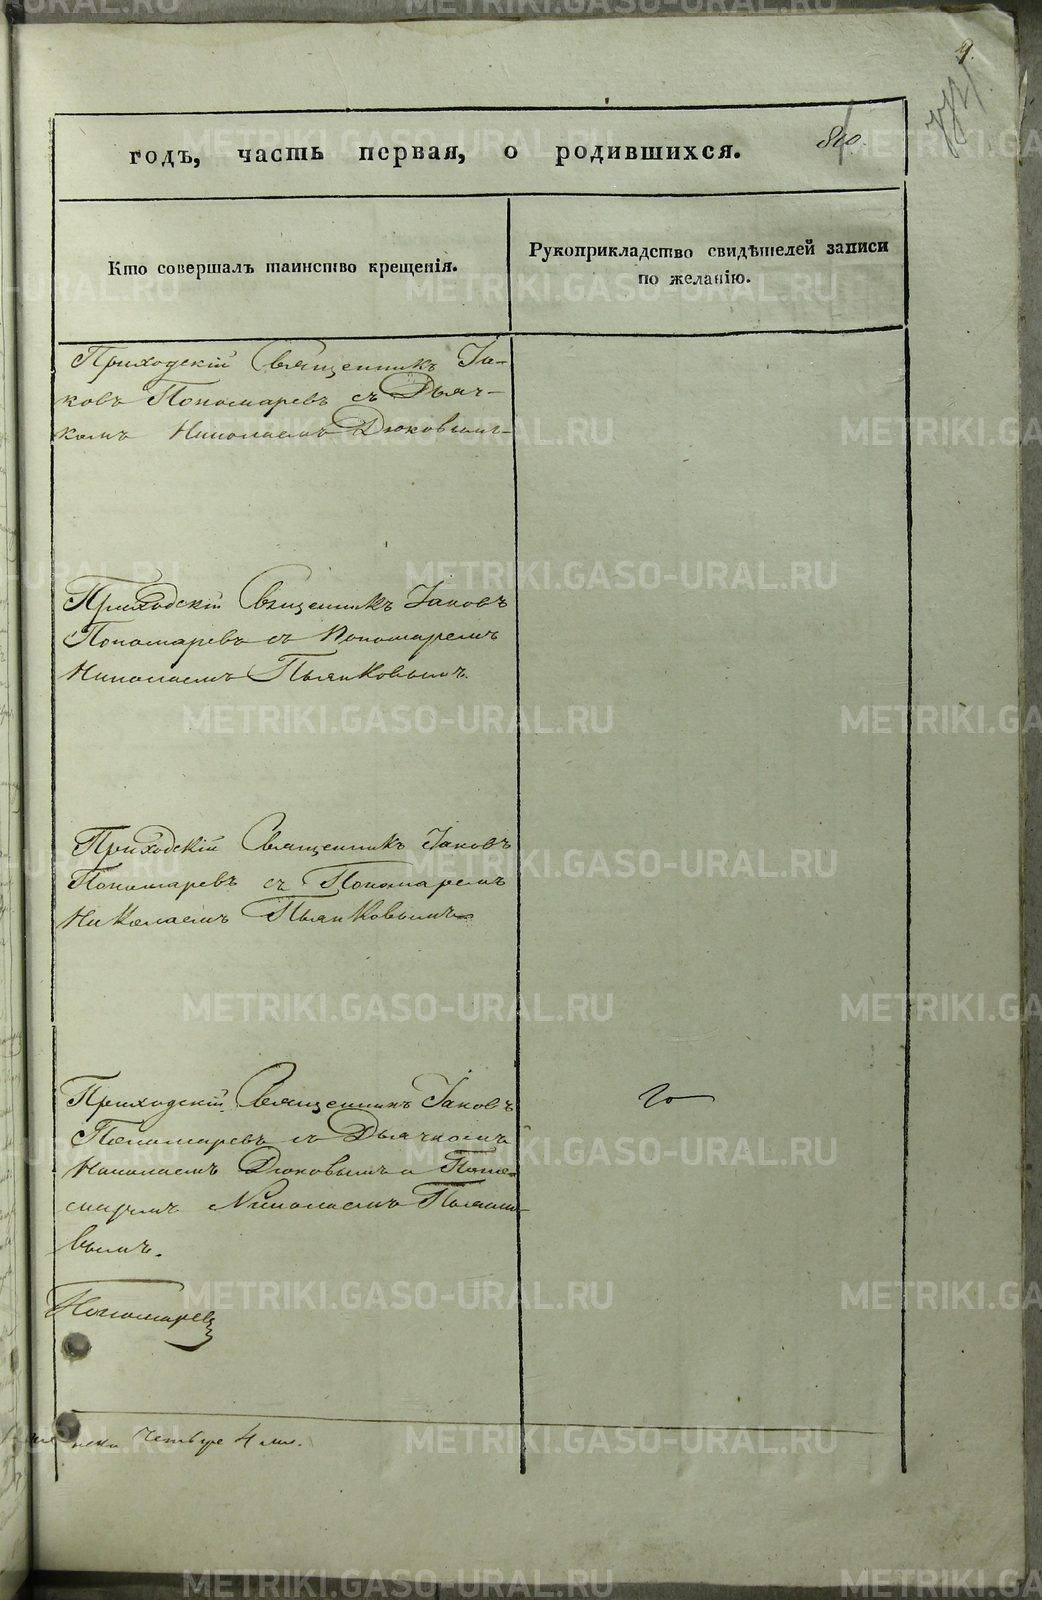 9.
годъ, часть первая, о родившихся.
Кто совершалъ таинство крещенія.
Рукоприкладство свидѣтелей записи
по желанію.
Приходскій Священникъ Іа-
ковъ Пономаревъ съ Дьяч-
комъ Николаемъ Дюковымъ
Приходскій Священникъ Іаковъ
Пономаревъ съ Пономаремъ
Николаемъ Пьянковымъ.
Приходскій Священникъ Іаковъ
Пономаревъ съ Пономаремъ
Николаемъ Пьянковымъ
Приходскій Священникъ Іаковъ
Пономаревъ съ Дьячкомъ
Николаемъ Дюковымъ и Поно-
маремъ Николаемъ Пьянко-
вымъ.
Пономаревъ
METRIKI.GASO-URAL.RU